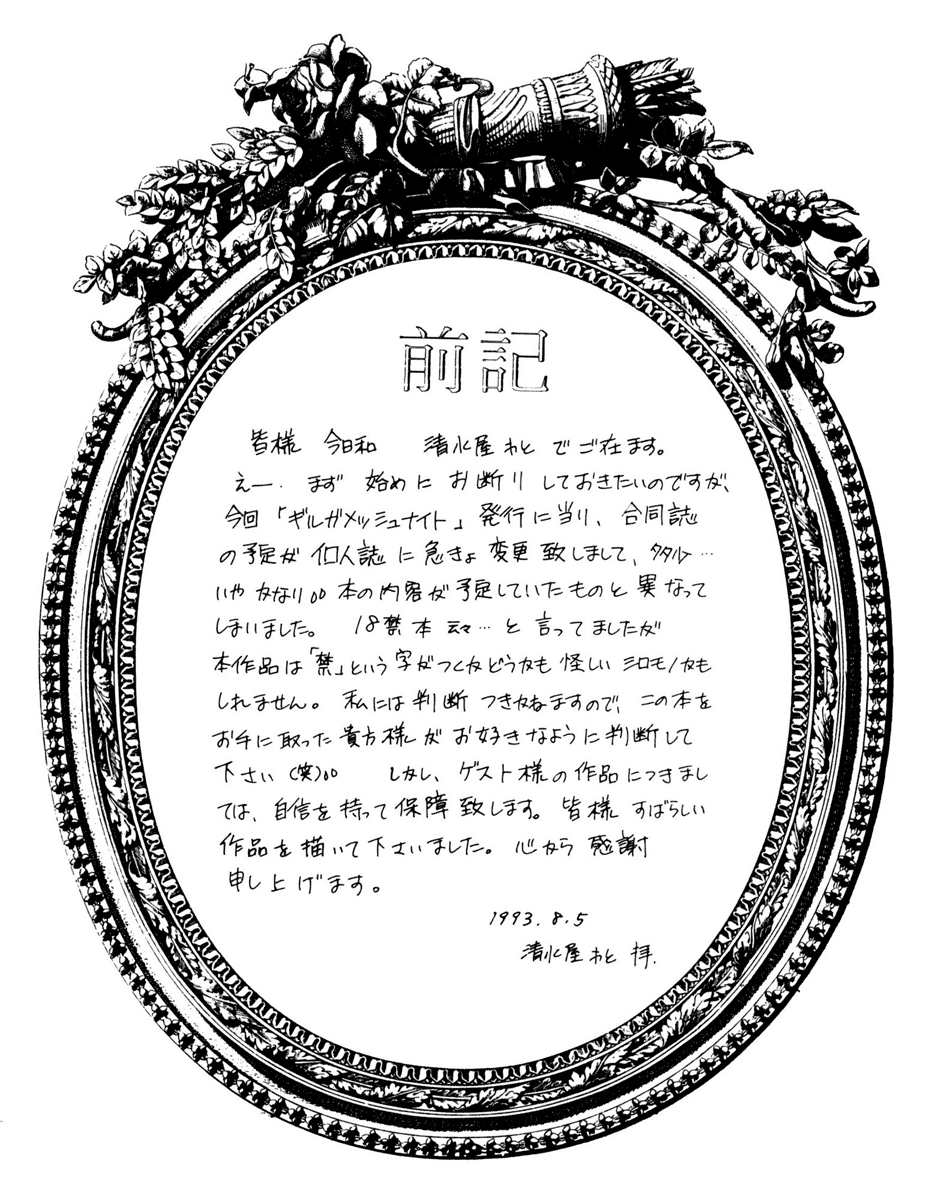 前記
皆様 今日和 清水屋わと でご在ます。
えー. まず 始めに お断り しておきたいのですが、
今回「ギルガメッシュナイト」発行に当り、合同誌
の予定が 個人誌に急きょ 変更致しまして、多少…
いや かなり。。 本の内容が予定していたものと異なって
しまいました。 18禁本 云々… と言ってましたが
本作品は「禁」という字がつくかどうかも怪しいシロモノかも
しれません。私には判断つきかねますので、この本を
お手に取った貴方様がお好きなように判断して
下さい(笑)。。 しかし、ゲスト様の作品につきまし
ては、自信を持って保障致します。皆様すばらしい
作品を描いて下さいました。心から感謝
申し上げます。
1993.8.5
清水屋わと 拝.